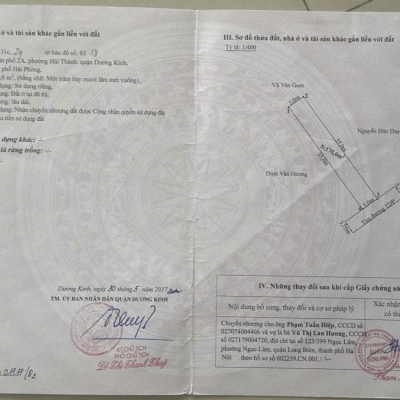 ở và tài sản khác gắn liền với đất
tờ bản đồ số:
phố 2A, phường Hải Thành, quận Dương Kinh,
phố Hải Phòng.
(bằng chữ: Một trăm bảy mươi lăm mét vuông),
dụng: Sử dụng riêng;
dụng: Đất ở tại đô thị,
dụng: lâu dài,
dụng: Nhận chuyển nhượng đất được Công nhận quyền sử dụng đất
tiền sử dụng đất
dụng khác: -/-
là rừng trồng: -/-
Dương Kinh, ngày 30 tháng 5 năm 2017
TM. ỦY BAN NHÂN DÂN QUẬN DƯƠNG KINH
PHÓ CHỦ TỊCH
III. Sơ đồ thửa đất, nhà ở và tài sản khác gắn liền với đất
Tỷ lệ 1/400
Vũ Văn Gom
5.0m
Nguyễn Đức Duy
35.0m
35.0m
Đinh Văn Hương
5.0m
IV. Những thay đổi sau khi cấp Giấy chứng
Nội dung bổ sung, thay đổi và cơ sở pháp lý
Xác nhận
có th
Chuyển nhượng cho ông Phạm Tuấn Hiệp, CCCD
số 027074004406 và vợ là bà Vũ Thị Lan Hương, CCCD
số 027179004720, địa chỉ tại số 123/399 Ngọc Lâm,
phường Ngọc Lâm, quận Long Biên, thành phố Hà
Nội theo hồ sơ 002259.CN.001